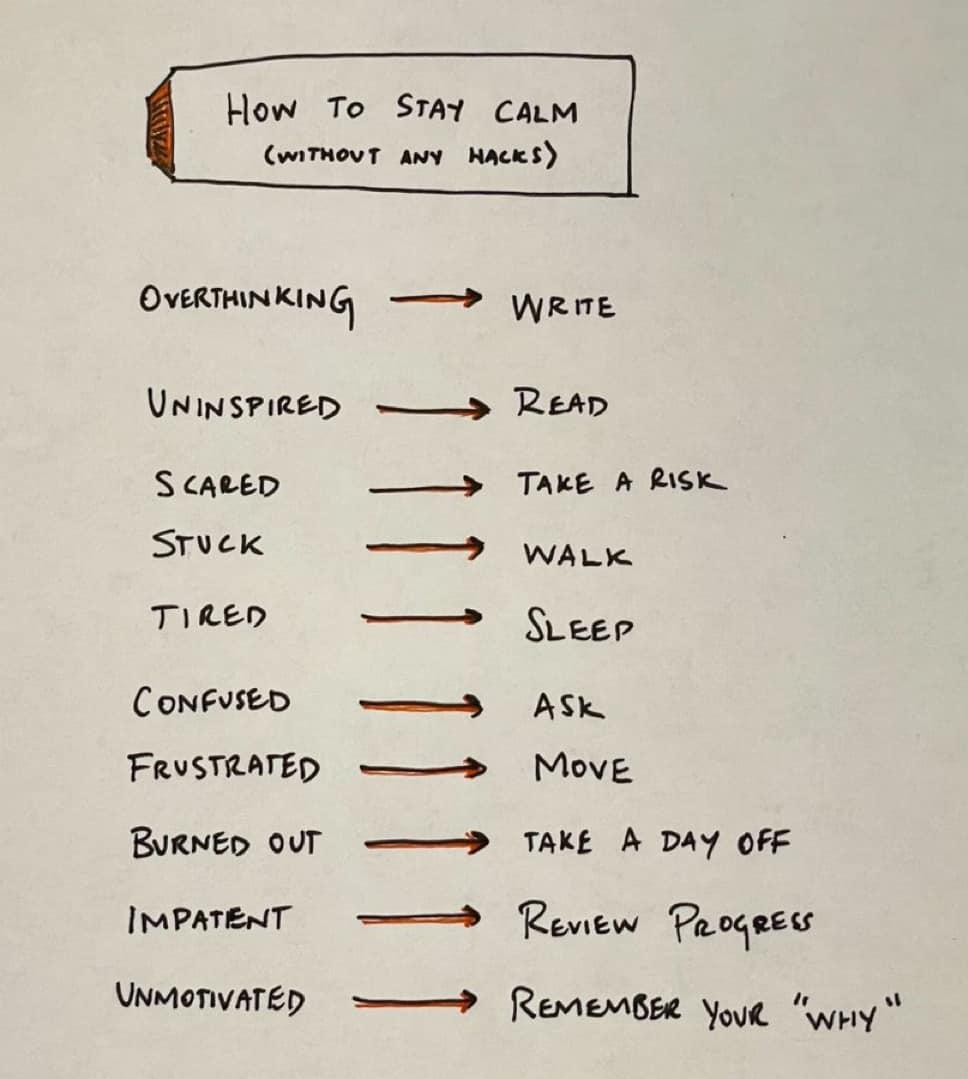 HOW TO STAY CALM
(WITHOUT ANY HACKS)
OVERTHINKING → WRITE
UNINSPIRED → READ
SCARED → TAKE A RISK
STUCK → WALK
TIRED → SLEEP
CONFUSED → ASK
FRUSTRATED → MOVE
BURNED OUT → TAKE A DAY OFF
IMPATIENT → REVIEW PROGRESS
UNMOTIVATED → REMEMBER YOUR "WHY"